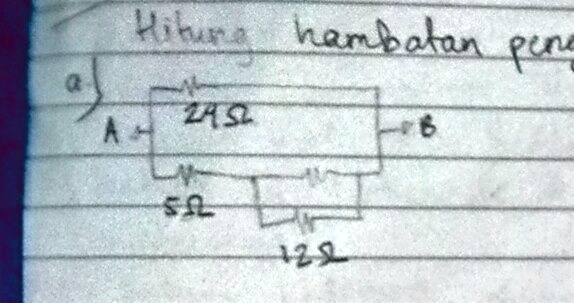 Hitung hambatan peng
a)
24Ω
A
B
5Ω
12Ω